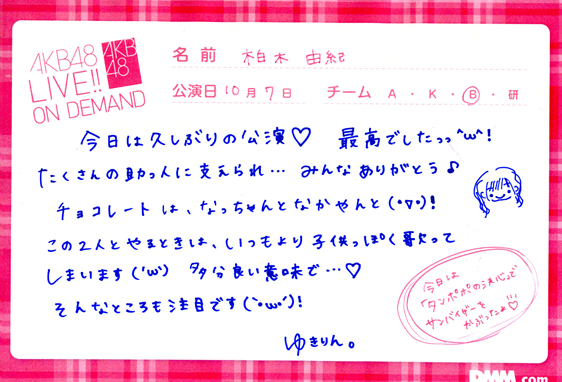 AKB48
LIVE!!
ON DEMAND
AKB
48
名前 柏木 由紀
公演日 10月7日 チーム A・K・B・研
今日は久しぶりの公演♡ 最高でしたっっ^ω^!
たくさんの助っ人に支えられ… みんなありがとう♪
チョコレートは、なっちゃんとなかやんと(・∇・)!
この2人とやるときは、いつもより子供っぽく歌って
しまいます('ω') 多分良い意味で…♡
そんなところも注目です(`・ω・´)!
ゆきりん。
今日は
「タンポポの決心」で
サンバイザーを
かぶったよ♡
DMM.com